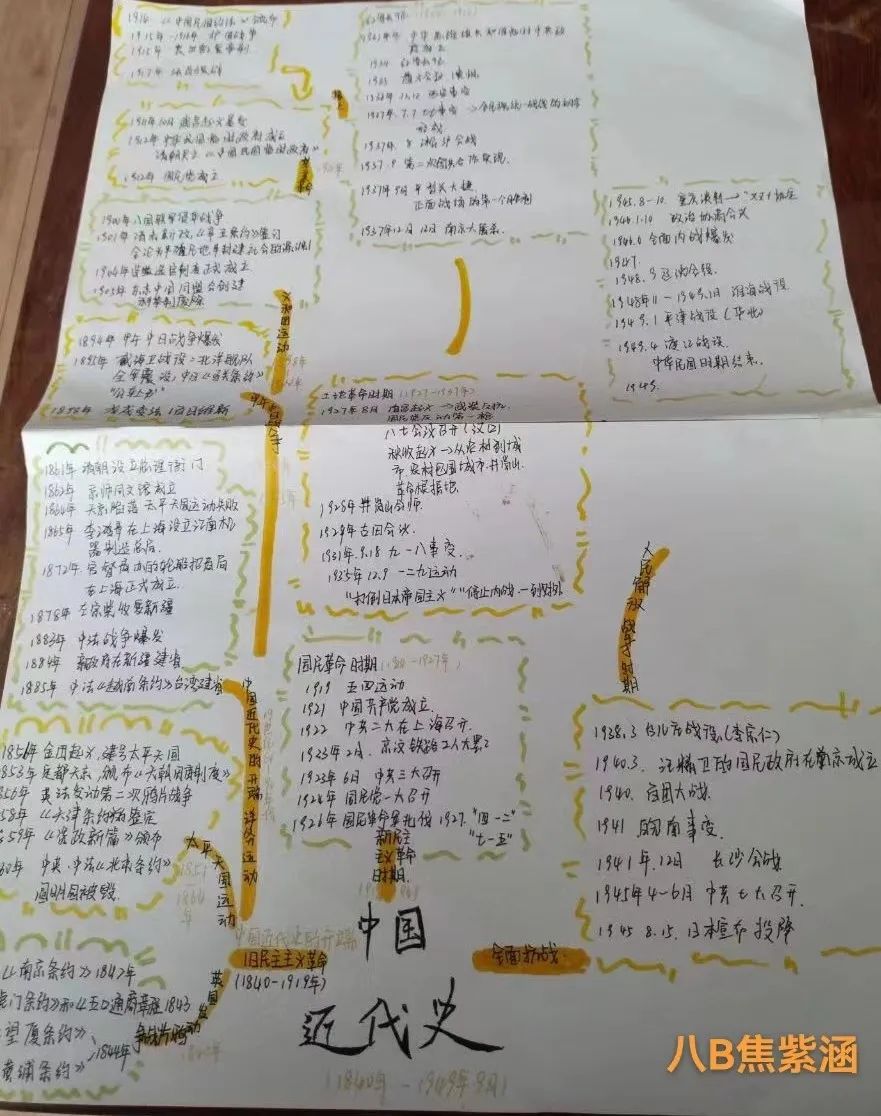 1914 《中国民国约法》颁布
1915年-1916年 护国战争
1917年 护法战争
1911年10月 武昌起义爆发
1912年 中华民国临时政府成立
1912年 国民党成立
1900年 八国联军侵华战争
1901年 清末新政,《辛丑条约》签订
1905年 东京 中国同盟会创建
科举制废除
1894年 甲午中日战争爆发
1895年 威海卫战役:北洋舰队
全军覆没,中日《马关条约》
"公车上书"
1898年 戊戌变法
义和团运动
甲午中日战争
1861年 清朝设立总理衙门
1862年 京师同文馆成立
1864年 天京陷落 太平天国运动失败
1865年 李鸿章在上海设立江南机
器制造总局
1872年 官督商办的轮船招商局
在上海正式成立.
1878年 左宗棠收复新疆
1883年 中法战争爆发
1884年 新政府在新疆建省
1885年 中法《越南条约》台湾建省
中国近代史的开端 洋务运动
金田起义,建号太平天国
853年 定都天京,颁布《天朝田亩制度》
856年 英法发动第二次鸦片战争
58年 《天津条约》签定
859年 《资政新篇》颁布
60年 中英、中法《北京条约》
圆明园被毁.
太平天国运动
1851
1864
年
《南京条约》1842年
虎门条约》和《五口通商章程 1843
望厦条约》、
黄埔条约》
1844年
中国近代史的开端
旧民主主义革命
(1840-1919年)
1935 遵义会议
1936年12.12 西安事变
1937年.7.7 七七事变
形成
1937年.8 淞沪会战
1937.9 第二次国共合作实现.
1937年9月 平型关大捷
正面战场的第一个胜利
1937年12月12日 南京大屠杀.
土地革命时期(1927-1937年)
1927年8月 南昌起义
八七会议召开(汉口)
秋收起义→从农村到城
市 农村包围城市.井岗山
革命根据地.
1928年 井岗山会师.
1929年 古田会议
1931年.9.18 九一八事变.
1935年 12.9 一二九运动
"打倒日本帝国主义""停止内战一致对外
国民革命时期
1919 五四运动
1921 中国共产党成立.
1922 中共二大在上海召开.
1923年2月. 京汉铁路工人大罢工
1923年6月 中共三大召开
1924年 国民党一大召开
1926年 国民革命军北伐 1927."四一二"
"七一五"
新民主
主义革命
时期.
中国
近代史
(1840年-1949年9月)
全面抗战.
1945.8-10. 重庆谈判→"双十协定
1946.1.10 政治协商会议
1946.6 全面内战爆发
1947.
1948.9 辽沈会战.
1948年11-1949.1月 淮海战役
1949.1 平津战役(华北)
1949.4 渡江战役.
中华民国时期结束.
1949.
人民解放战争时期
1938.3 台儿庄战役.(李宗仁)
1940.3. 汪精卫的国民政府在南京成立
1940. 百团大战.
1941 皖南事变.
1941年.12月 长沙会战
1945年4-6月 中共七大召开.
1945 8.15.日本宣布投降
八B焦紫涵